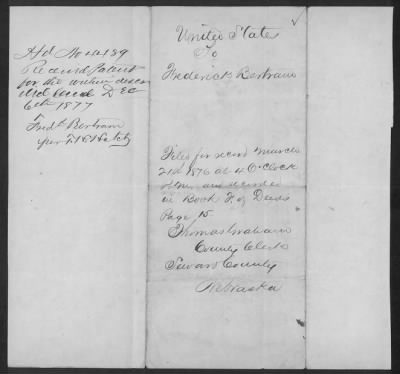 Hd No 12139
Recieved Patent
for the within descri
bed land Dec
6th 1877
Fredk Bertram
per T. H.
United States
To
Frederick Bertram
Filed for record March
21d 1876 at 4 O'Clock
and recorded
in Book F. of Deeds
Page 15
Thomas Graham
County Clerk
Seward County
Nebraska